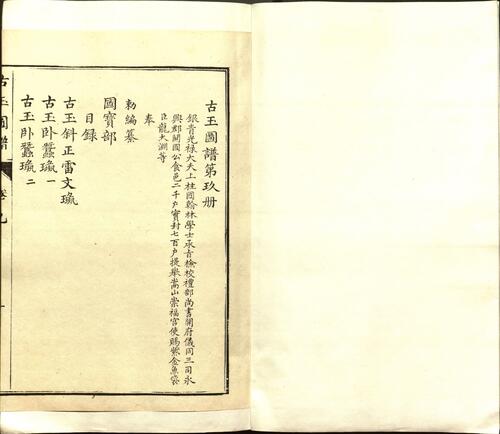 古玉圖譜第玖册
銀青光祿大夫上柱國翰林學士承旨檢校禮部尚書開府儀同三司永
興郡開國公食邑二千戶實封七百戶提舉嵩山崇福宮使賜紫金魚袋
臣龍大淵等
奉
勅編纂
國寶部
目錄
古玉斜正雷文瑞
古玉卧蠶瑞一
古玉卧蠶瑞二
古玉圖譜
卷九
一